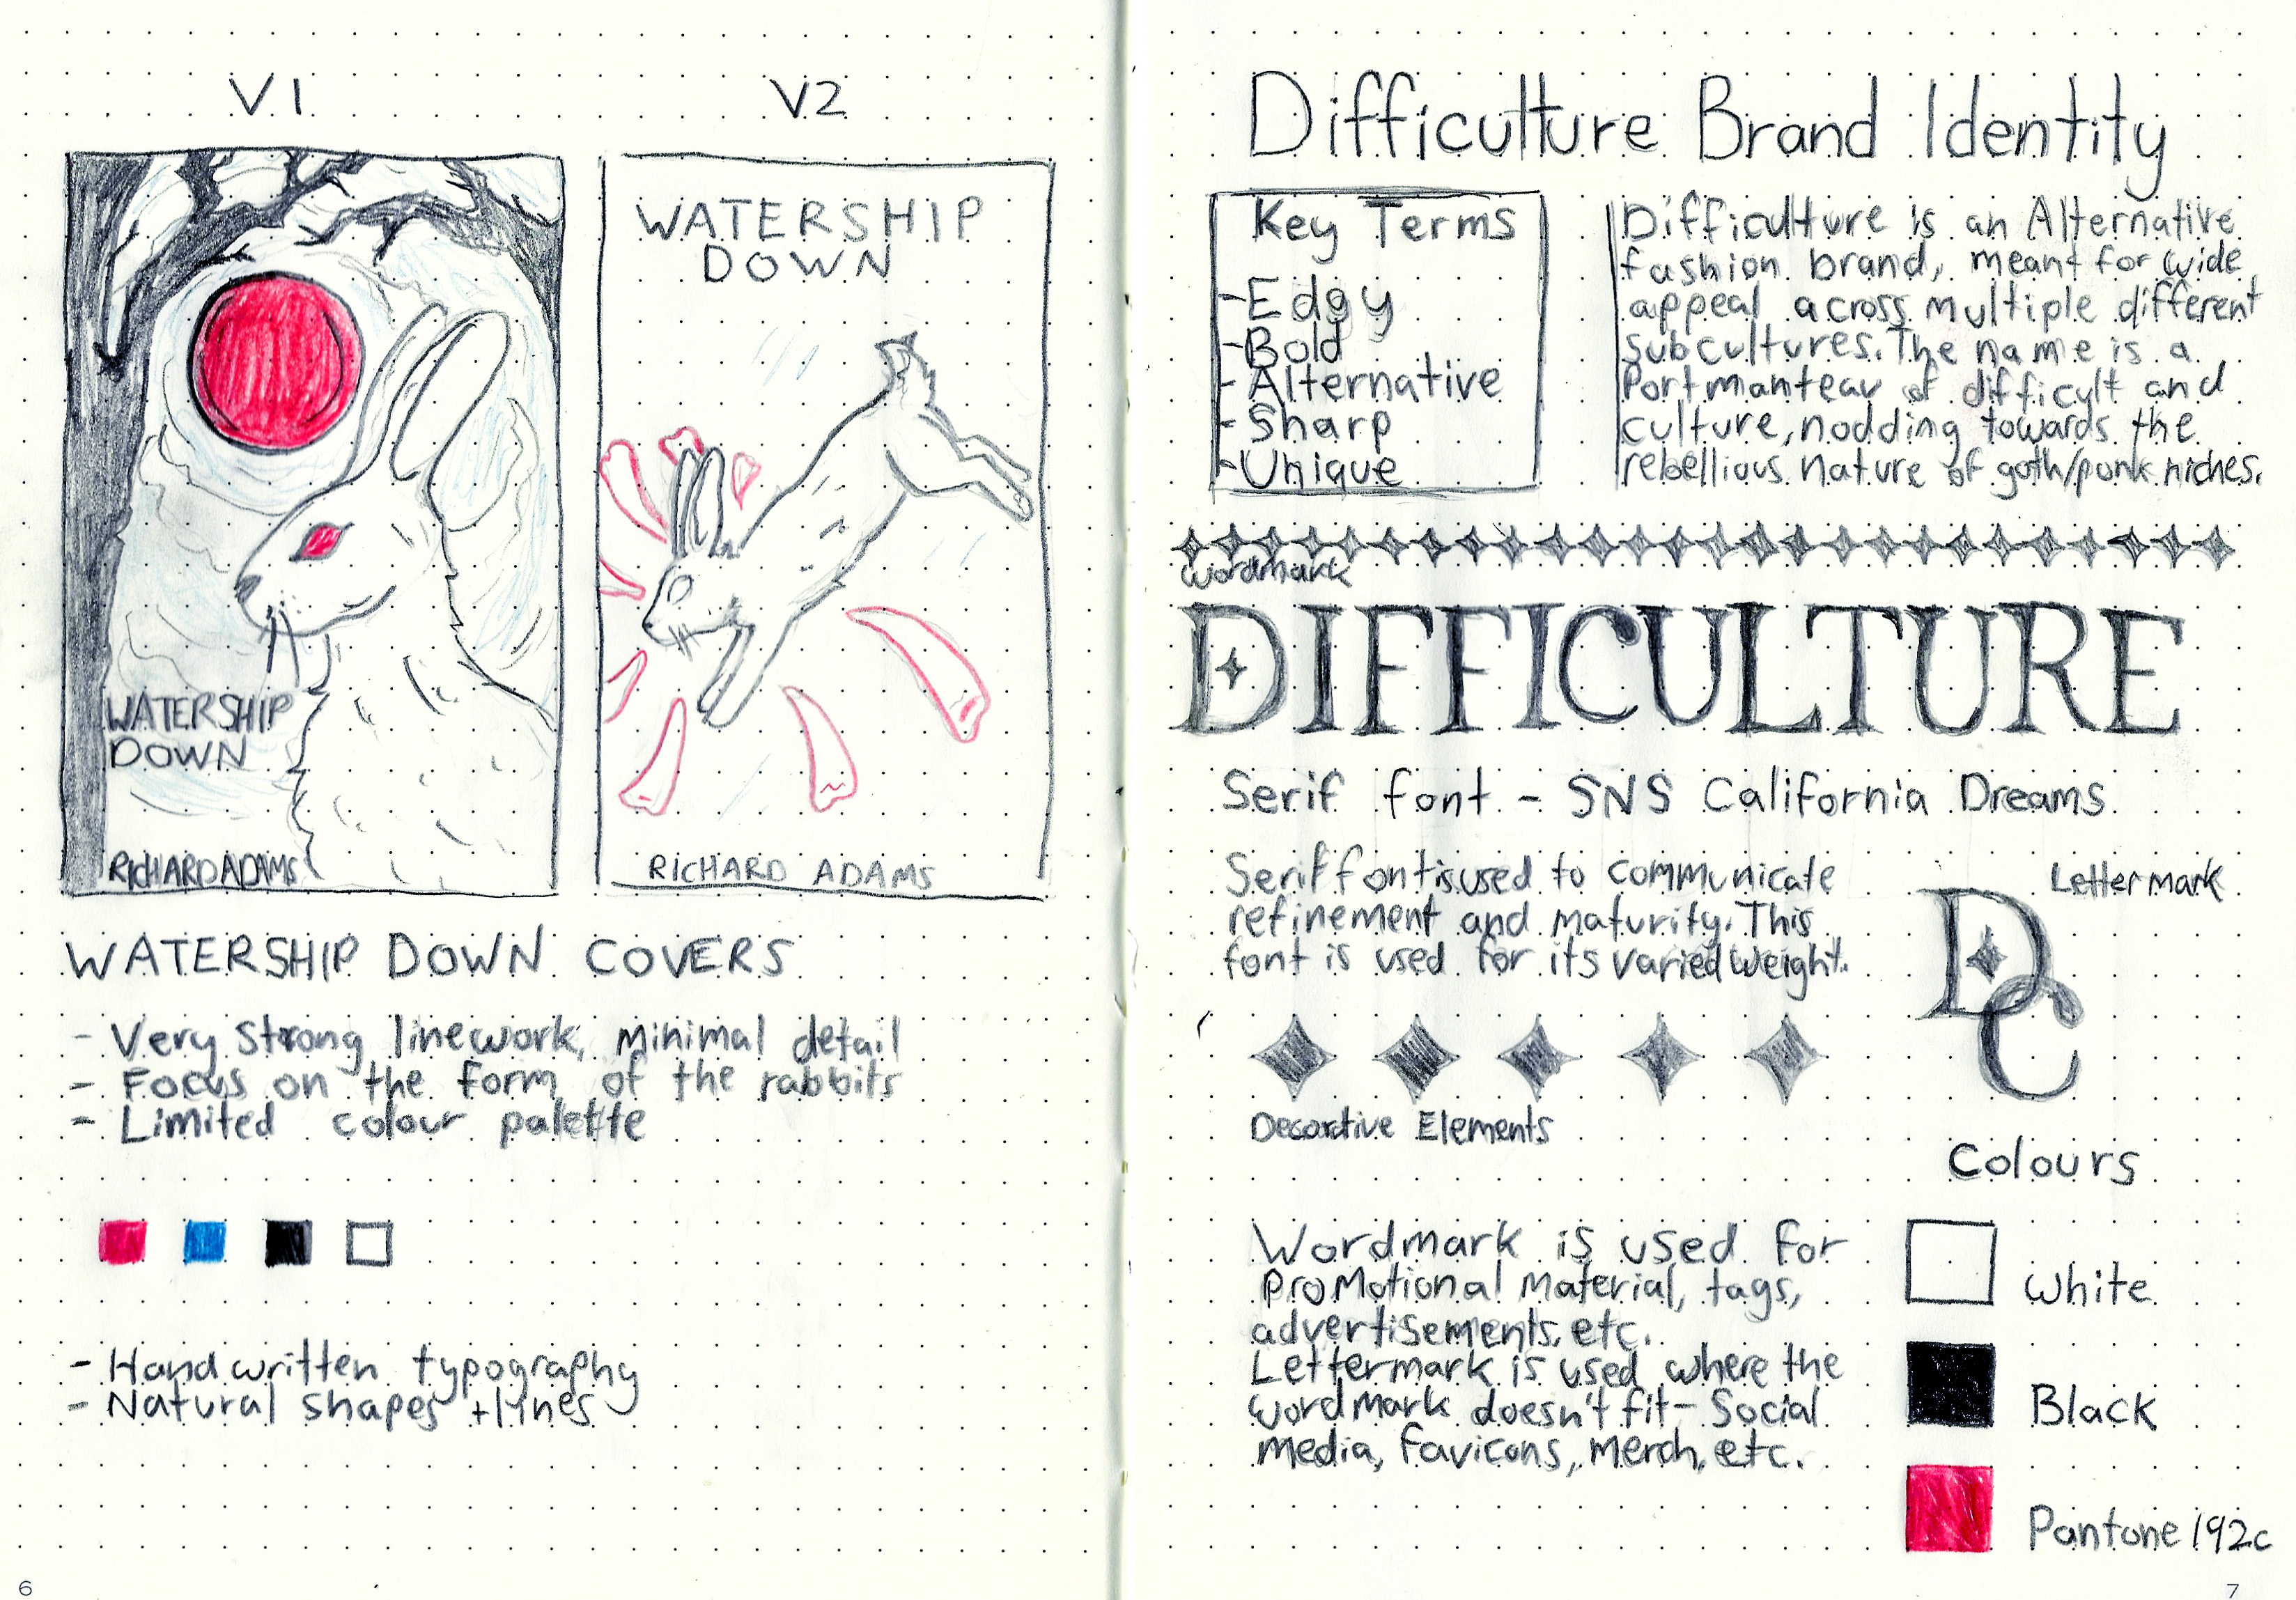 V1
V2
WATERSHIP
DOWN
RICHARD ADAMS
WATERSHIP
DOWN
RICHARD ADAMS
WATERSHIP DOWN COVERS
- Very Strong linework, minimal detail
- Focus on the form of the rabbits
- Limited colour palette
- Handwritten typography
- Natural shapes + lines
6
Difficulture Brand Identity
Key Terms
- Edgy
- Bold
- Alternative
- Sharp
- Unique
Difficulture is an Alternative
fashion brand, meant for wide
appeal across multiple different
subcultures. The name is a
Portmanteau of difficult and
culture, nodding towards the
rebellious nature of goth/punk niches.
Wordmark
DIFFICULTURE
Serif font - SNS California Dreams
Serif font is used to communicate
refinement and maturity. This
font is used for its varied weight.
Lettermark
DC
Decorative Elements
Wordmark is used for
promotional material, tags,
advertisements, etc.
Lettermark is used where the
wordmark doesn't fit - Social
media, favicons, merch, etc.
Colours
White
Black
Pantone 192c
7